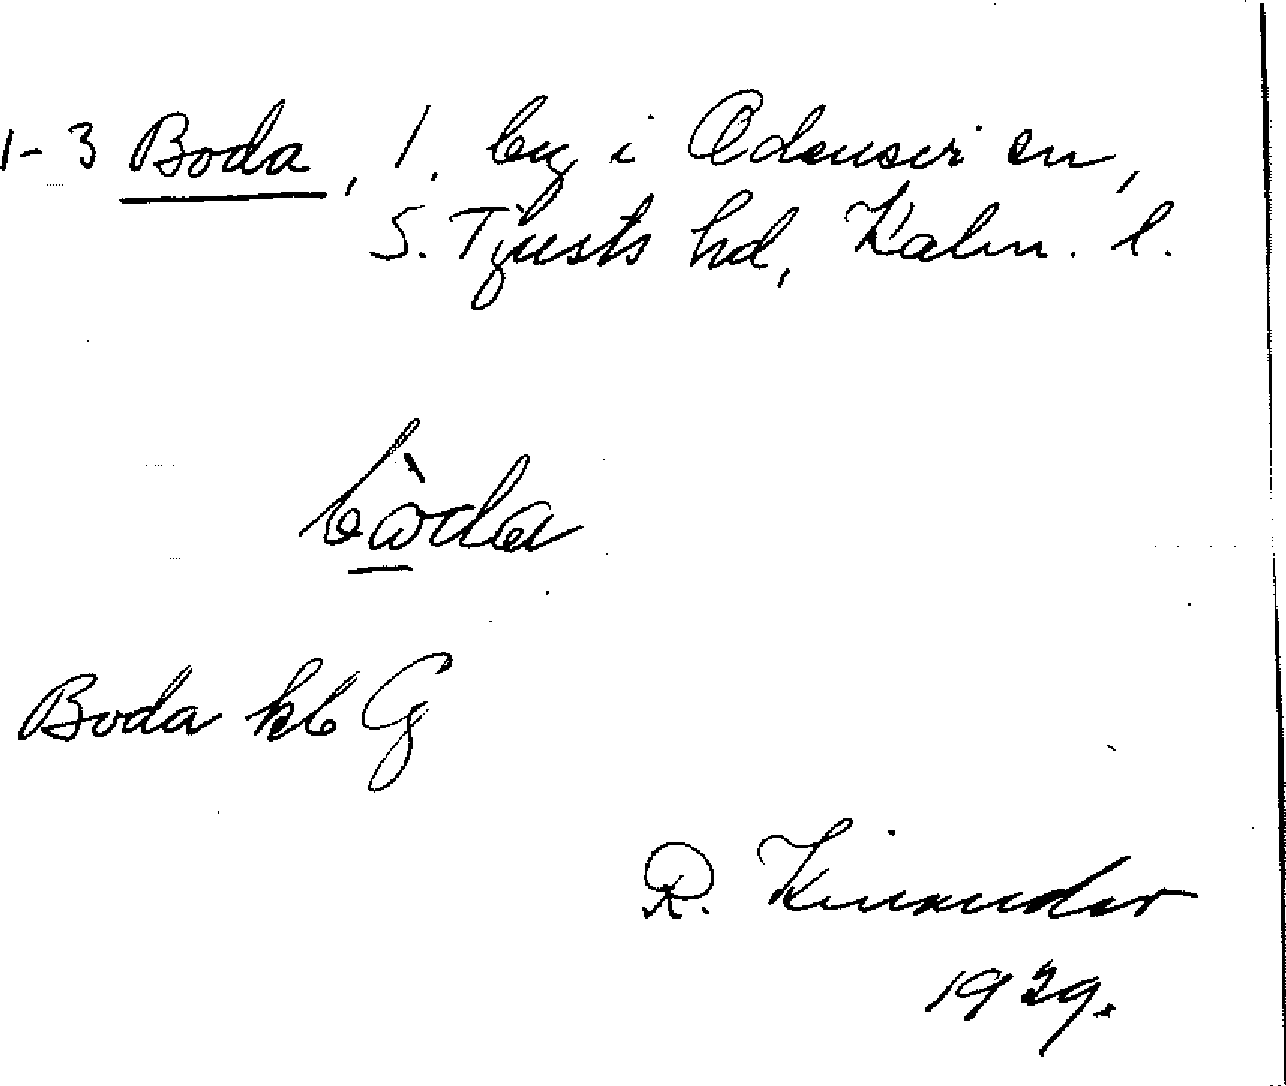 1-3 Boda, 1. by i Odensvi sn,
S. Tjusts hd, Kalm. l.
bòda
Boda kb G
R. Kinander
1929.